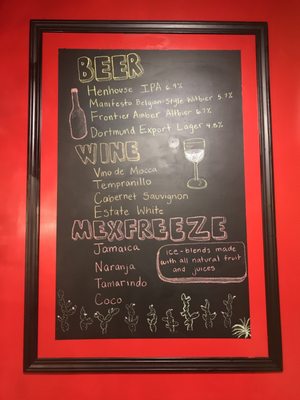 BEER
Henhouse IPA 6.9%
Manifesto Belgian-Style Witbier 5.7%
Frontier Amber Altbier 6.7%
Dortmund Export Lager 4.8%
WINE
Vino de Mocca
Tempranillo
Cabernet Sauvignon
Estate White
MEXFREEZE
Jamaica
Naranja
Tamarindo
Coco
ice-blends made
with all natural fruit
and juices